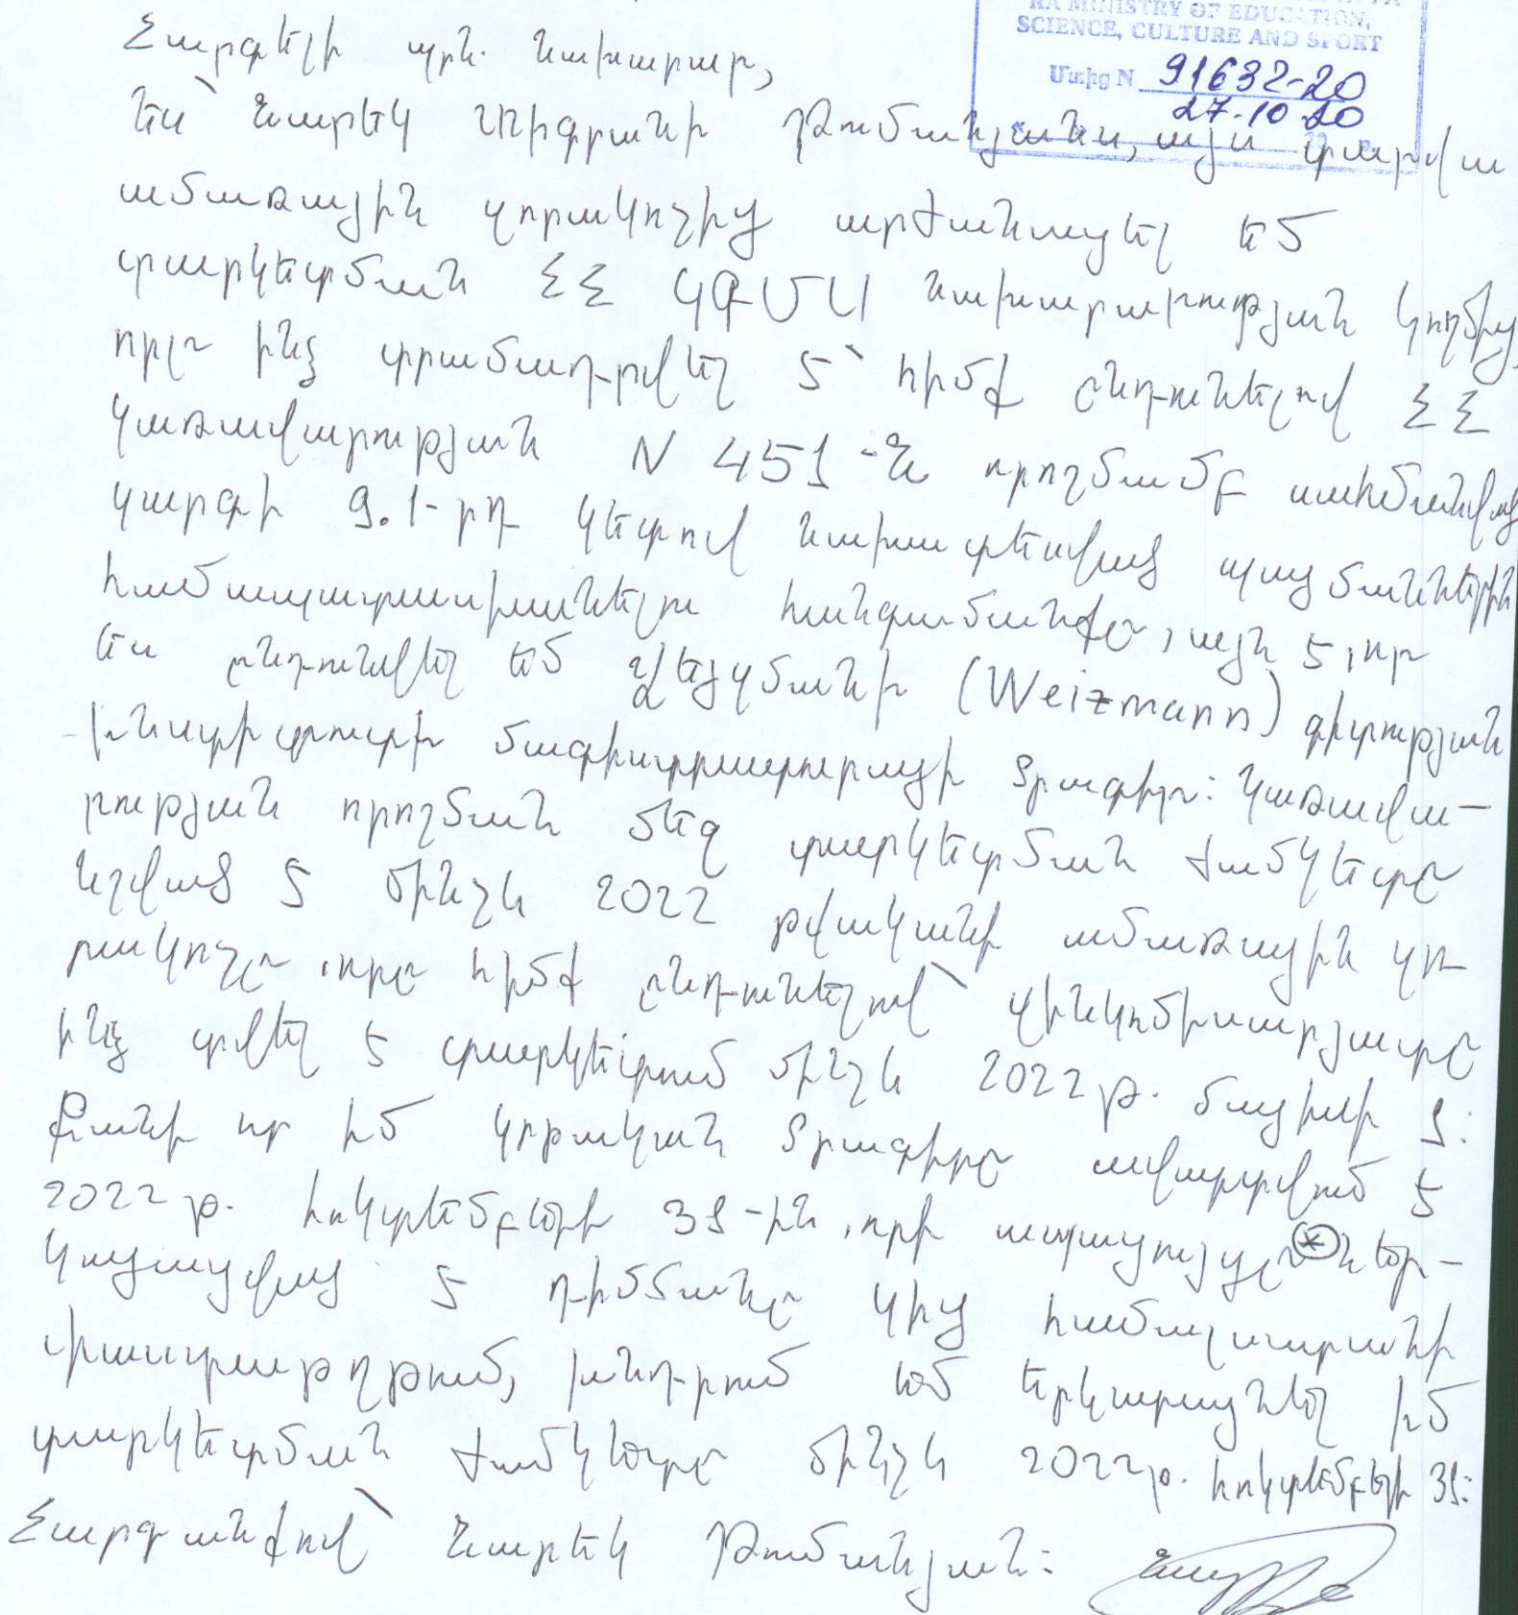 RA MINISTRY OF EDUCATION,
SCIENCE, CULTURE AND SPORT
Մտից N 91632-20
27.10.20
Հարգելի պրն. նախարար,
Ես՝ Նարեկ Տիգրանի Թումանյանս, այս տարվա
ամառային զորակոչից արժանացել եմ
տարկետման ՀՀ ԿԳՄՍ նախարարության կողմից,
որը ինձ տրամադրվել է՝ հիմք ընդունելով ՀՀ
կառավարության N 451-Ն որոշմամբ սահմանված
կարգի 9.1-րդ կետով նախատեսված պայմաններին
համապատասխանելու հանգամանքը, այն է, որ
ես ընդունվել եմ Վեյցմանի (Weizmann) գիտության
ինստիտուտի մագիստրատուրայի ծրագիր: Կառավա-
րության որոշման մեջ տարկետման ժամկետը
նշված է մինչև 2022 թվականի ամառային զո-
րակոչը, որը հիմք ընդունելով՝ զինկոմիսարյատը
ինձ տվել է տարկետում մինչև 2022թ. մայիսի 1:
Քանի որ իմ կրթական ծրագիրը ավարտվում է
2022թ. հոկտեմբերի 31-ին, որի ապացույցը * ներ-
կայացված է դիմմանը կից համալսարանի
փաստաթղթում, խնդրում եմ երկարացնել իմ
տարկետման ժամկետը մինչև 2022թ. հոկտեմբերի 31:
Հարգանքով՝ Նարեկ Թումանյան: